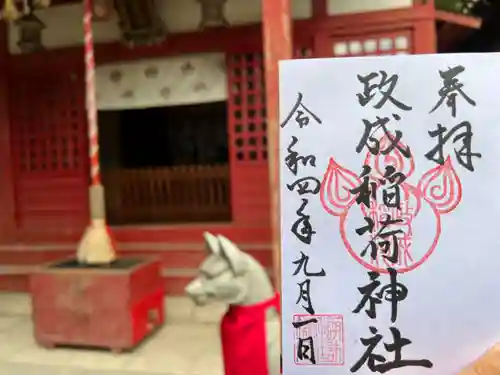 奉拝
政成稲荷神社
令和四年九月一日